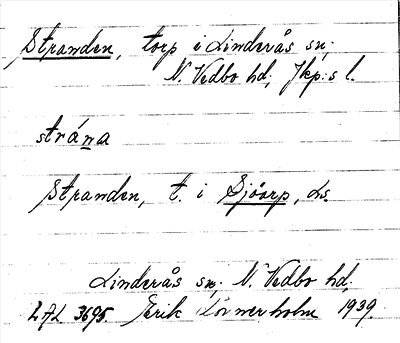 Stranden, torp i Linderås sn;
N. Vedbo hd, Jkp:s l.
strána
Stranden, t. i Sjöarp, Ls.
Linderås sn; N. Vedbo hd.
LAL 3695 Erik Lönnerholm 1939.